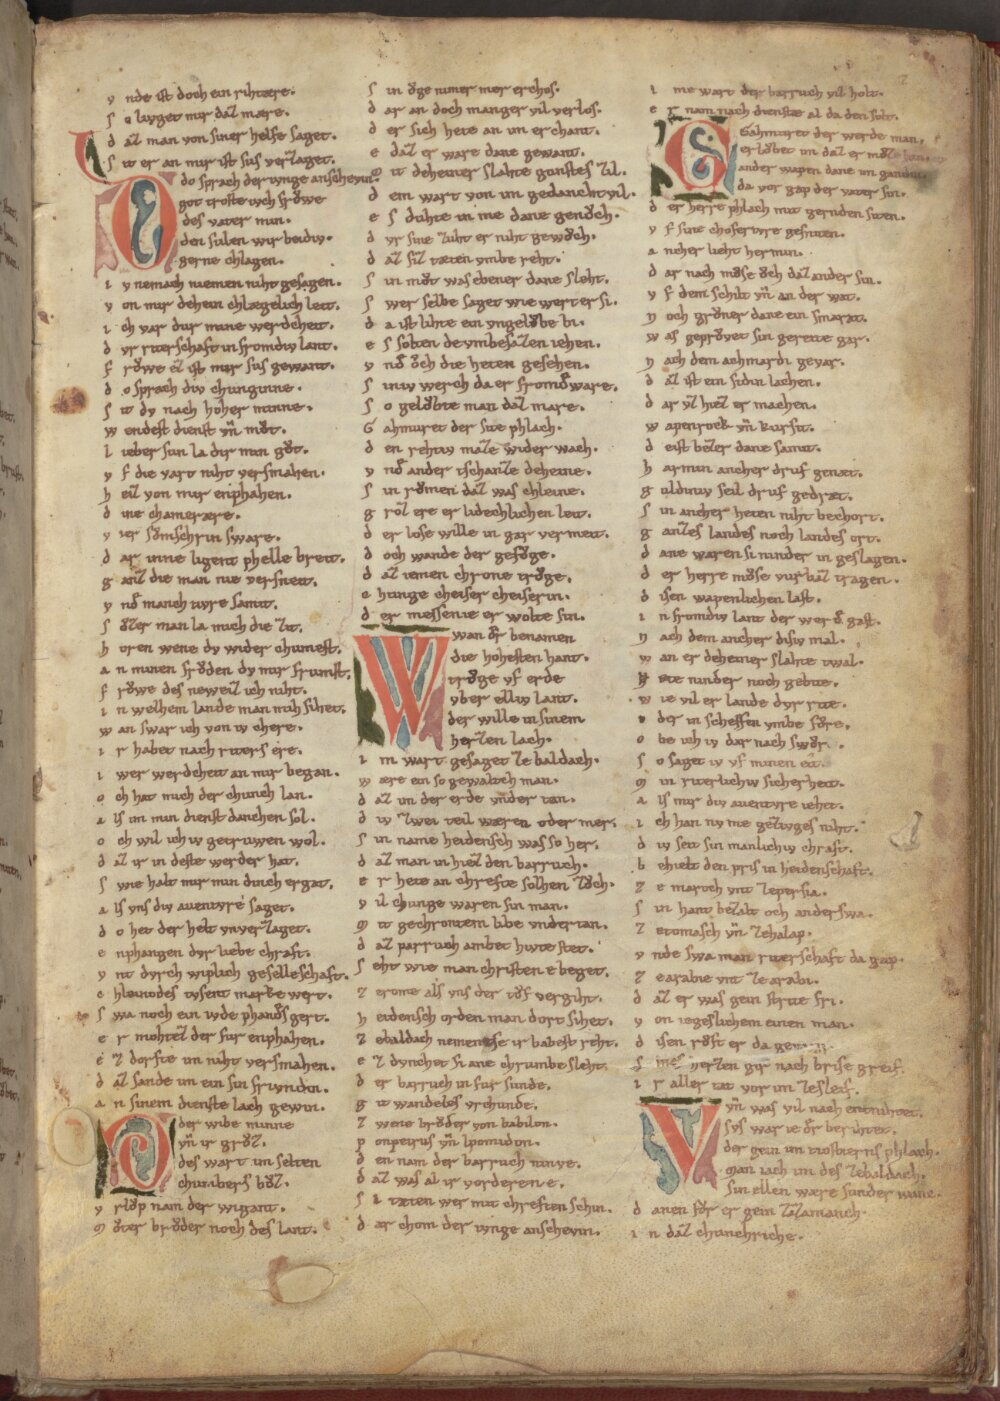 v nde ist doch ein rihtære.
s o lvget mir daʒ mære.
d aʒ man von siner helfe saget.
s it er an mir ist sus verzaget.
do sprach der ivnge anscheuin.
got troste ivch frowe
des vater min.
den sulen wir beidiv
gerne chlagen.
i v nemach niemen niht gesagen.
v on mir dehein chlægelich leit.
i ch var dur mine werdcheit.
d vr riterschaft in fromdiv lant.
f rowe eʒ ist mir sus gewant.
d o sprach div chuneginne.
s it dv nach hoher minne.
w endest dienst vn̄ mv̊t.
l ieber sun la dir min gv̊t.
v f die vart niht versmahen.
h eiʒ von mir enphahen.
d ine chamerære.
v ier sǒmschrin sware.
d ar inne ligent phelle breit.
g anʒ die man nie versneit.
v nd̊ manch tivre samit.
s ůʒer man la mich die ʒit.
h oren wene dv wider chumest.
a n minen frǒden dv mir frumst.
f rǒwe des neweiʒ ich niht.
i n welhem lande man mih sihet.
w an swar ich von iv chere.
i r habet nach riters ere.
i wer werdcheit an mir began.
o ch hat mich der chunch lan.
a ls im min dienst danchen sol.
o ch wil ich iv getruwen wol.
d aʒ ir in deste werder hat.
s wie halt mir min dinch ergat.
a ls vns div auentvre saget.
d o het der helt vnverʒaget.
e nphangen dvr liebe chraft.
v nt dvrch wiplich geselleschaft.
c hleinodes tvsent marke wert.
s wa noch ein ivde phandes gert.
e r mohteʒ der fur enphahen.
e ʒ dorfte im niht versmahen.
d aʒ sande im ein sin friundin.
a n sinem dienste lach gewin.
der wibe minne
vn̄ ir grůʒ.
des wart im selten
chumbers bůʒ.
v rlǒp nam der wigant.
m ůter brůder noch des lant.
s in ǒge nimer mer erchos.
d ar an doch manger vil verlos.
d er sich hete an im erchant.
e daʒ er ware dane gewant.
m it deheiner slahte gunstes ʒil.
d em wart von im gedancht vil.
e s duhte in me dane genǒch.
d vr sine ʒuht er niht gewǒch.
d aʒ siʒ tæten vmbe reht.
s in mv̊t was ebener dane sleht.
s wer selbe saget wie wert er si.
d a ist lihte ein vngelǒbe bi.
e s solten de vmbesaʒen iehen.
v nd̊ ǒch die heten gesehen.
s iniv werch da er fromd̊ ware.
s o gelǒbte man daʒ mare.
G ahmuret der site phlach.
d en rehtiv maʒe wider wach.
v nd̊ ander tschanʒe deheine.
s in rv̊men daʒ was chleine.
g roʒ ere er lidechlichen leit.
d er lose wille in gar vermeit.
d och wande der gefǒge.
d aʒ iemen chrone trv̊ge.
c hunge cheiser cheiserin.
d er messenie er wolte sin.
wan d̊r benamen
die hohesten hant.
trv̊ge vf erde
vber elliv lant.
der wille in sinem
herʒen lach.
i m wart gesaget ʒe baldach.
w ære ein so gewaltch man.
d aʒ im der erde vnder tan.
d iv ʒwei teil wæren oder mer.
s in name heidensch was so her.
d aʒ man in hieʒ den barruch.
e r hete an chrefte solhen ʒǒch.
v il chunge waren sin man.
m it gechrontem libe vndertan.
d aʒ parruch ambet hivte stet.
s eht wie man christen e beget.
ʒ erome als vns der tǒf vergiht.
h eidensch orden man dort sihet.
ʒ ebaldach nement se ir babest reht.
e ʒ dvnchet si ane chrumbe sleht.
d er barruch in fur sunde.
g it wandeles vrchunde.
ʒ wene brůder von babilon.
p onpeirus vn̄ ipomidon.
d en nam der barruch ninve.
d aʒ was al ir vorderen e.
s i tæten wer mit chreften schin.
d ar chom der ivnge anschevin.
i me wart der barruch vil holt.
e r nam nach dienste al da den solt.
Gahmuret der werde man.
erlǒbet im daʒ er mv̊ʒe han.
ander wapen dane im gandin.
da vor gap der vater sin.
d er herre phlach mit gernden siten.
v f sine chofertvre gesniten.
a ncher lieht hermin.
d ar nach mv̊se ǒch daʒ ander sin.
v f dem schilt vn̄ an der wat.
n och grůner dane ein smarat.
w as geprǒvet sin gereite gar.
n ach dem achmardi gevar.
d aʒ ist ein sidin lachen.
d ar vʒ hieʒ er machen.
w apenrock vn̄ kursit.
d eist beʒer dane samit.
h armin ancher druf genæt.
g uldiniv seil druf gedræt.
s in ancher heten niht bechort.
g anʒes landes noch landes ort.
d ane waren si ninder in geslagen.
d er herre mv̊se vurbaʒ tragen.
d isen wapenlichen last.
i n fromdiv lant der werd̊ gast.
n ach dem ancher disiv mal.
w an er deheiner slahte twal.
h ete ninder noch gebite.
w ie vil er lande dvr rite.
v der in scheffen vmbe fůre.
o be ich iv dar nach swůr.
s o saget iv vf minen eit.
m in riterlichiv sicherheit.
a ls mir div auentvre iehet.
i ch han nv me geʒivges niht.
d iv seit sin manlichiv chraft.
b ehielt den pris in heidenschaft.
ʒ e maroch vnt ʒepersia.
s in hant beʒalt och anderswa.
ʒ etomasch vn̄ ʒehalap.
v nde swa man riterschaft da gap.
ʒ earabie vnt ʒe arabi.
d aʒ er was gein strite fri.
v on iegeslichem einen man.
d isen rv̊ft er da
s ines herʒen gir nach prise greif.
i r aller tat vor im ʒesleif.
vn̄ was vil nach entnihtet.
svs war ie d̊r berihtet.
der gein im tiostierns phlach.
man iach im des ʒebaldach.
sin ellen ware sunder wane.
d anen fůr er gein ʒaʒamanch.
i n daʒ chunchriche.